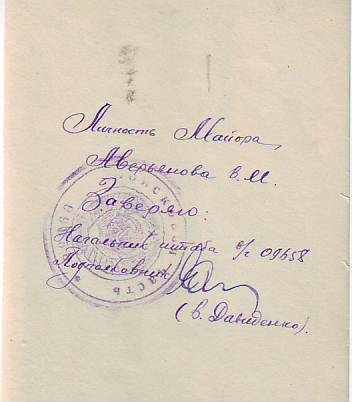 Личность Майора,
Аверьянова В.М.
Заверяю:
Начальник штаба в/ч 09658
Подполковник
(В. Давиденко).